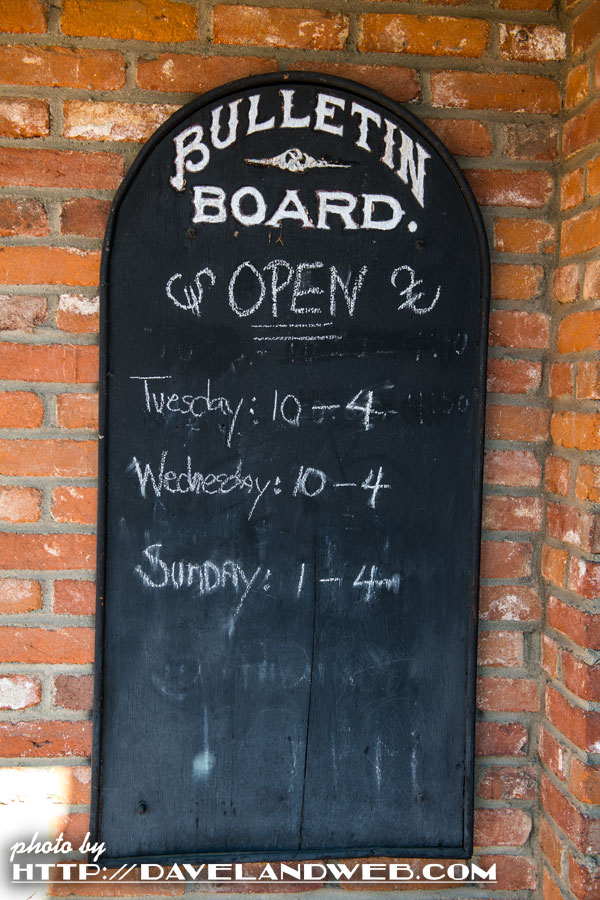 BULLETIN
BOARD.
OPEN
Tuesday: 10 – 4
Wednesday: 10 – 4
SUNDAY: 1 – 4
photo by
HTTP://DAVELANDWEB.COM